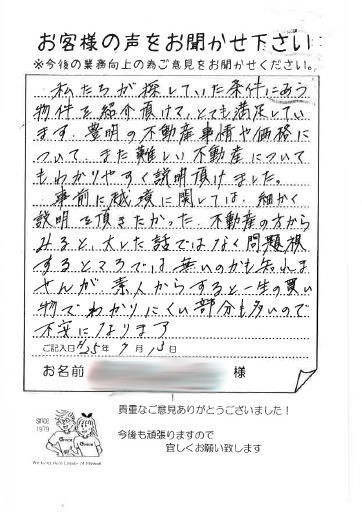 お客様の声をお聞かせ下さい
※今後の業務向上の為ご意見をお聞かせください。
私たちが探していた条件にあう
物件を紹介頂けて、とても満足してい
ます。豊明の不動産事情や価格に
ついて、また難しい不動産について
もわかりやすく説明頂けました。
事前に越境に関しては、細かく
説明を頂きたかった。不動産の方から
みると、大した話ではなく問題視
するところでは無いのかも知れま
せんが、素人からすると一生の買い
物でわかりにくい部分も多いので
不安になります
ご記入日 H25年 9月 13日
お名前 様
貴重なご意見ありがとうございました!
今後も頑張りますので
宜しくお願い致します
SINCE
1979